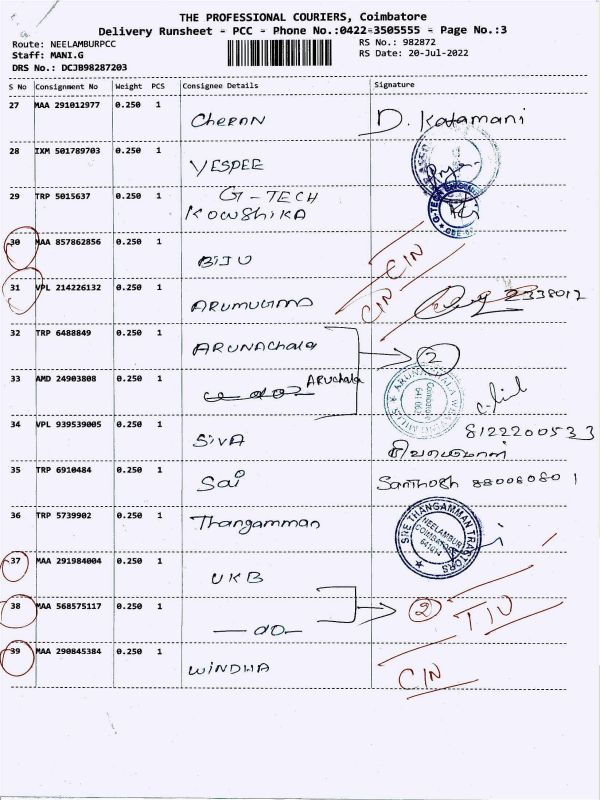 THE PROFESSIONAL COURIERS, Coimbatore
Delivery Runsheet - PCC - Phone No.:0422-3505555 - Page No.:3
Route: NEELAMBURPCC
RS No.: 982872
Staff: MANI.G
RS Date: 20-Jul-2022
DRS No.: DCJB98287203
S No Consignment No Weight PCS Consignee Details Signature
27 MAA 291012977 0.250 1
CHERAN D. Katamani
28 IXM 501789703 0.250 1
YESPEE
29 TRP 5015637 0.250 1 G-TECH
KOWSHIKA
30 MAA 857862856 0.250 1
BIJU CIN
31 VPL 214226132 0.250 1 CIN
ARUMUGAM 2338017
32 TRP 6488849 0.250 1
ARUNAChala 2
33 AMD 24903808 0.250 1 ARUChala
do2
34 VPL 939539005 0.250 1 8122200533
SIVA
35 TRP 6910484 0.250 1
Sai Santhosh 880060801
36 TRP 5739902 0.250 1
Thangamman SRE THANGAMMAN TRACTORS
NEELAMBUR
COIMBATORE
641014
37 MAA 291984004 0.250 1
UKB
38 MAA 568575117 0.250 1 2
do
39 MAA 290845384 0.250 1
WINDHA CIN